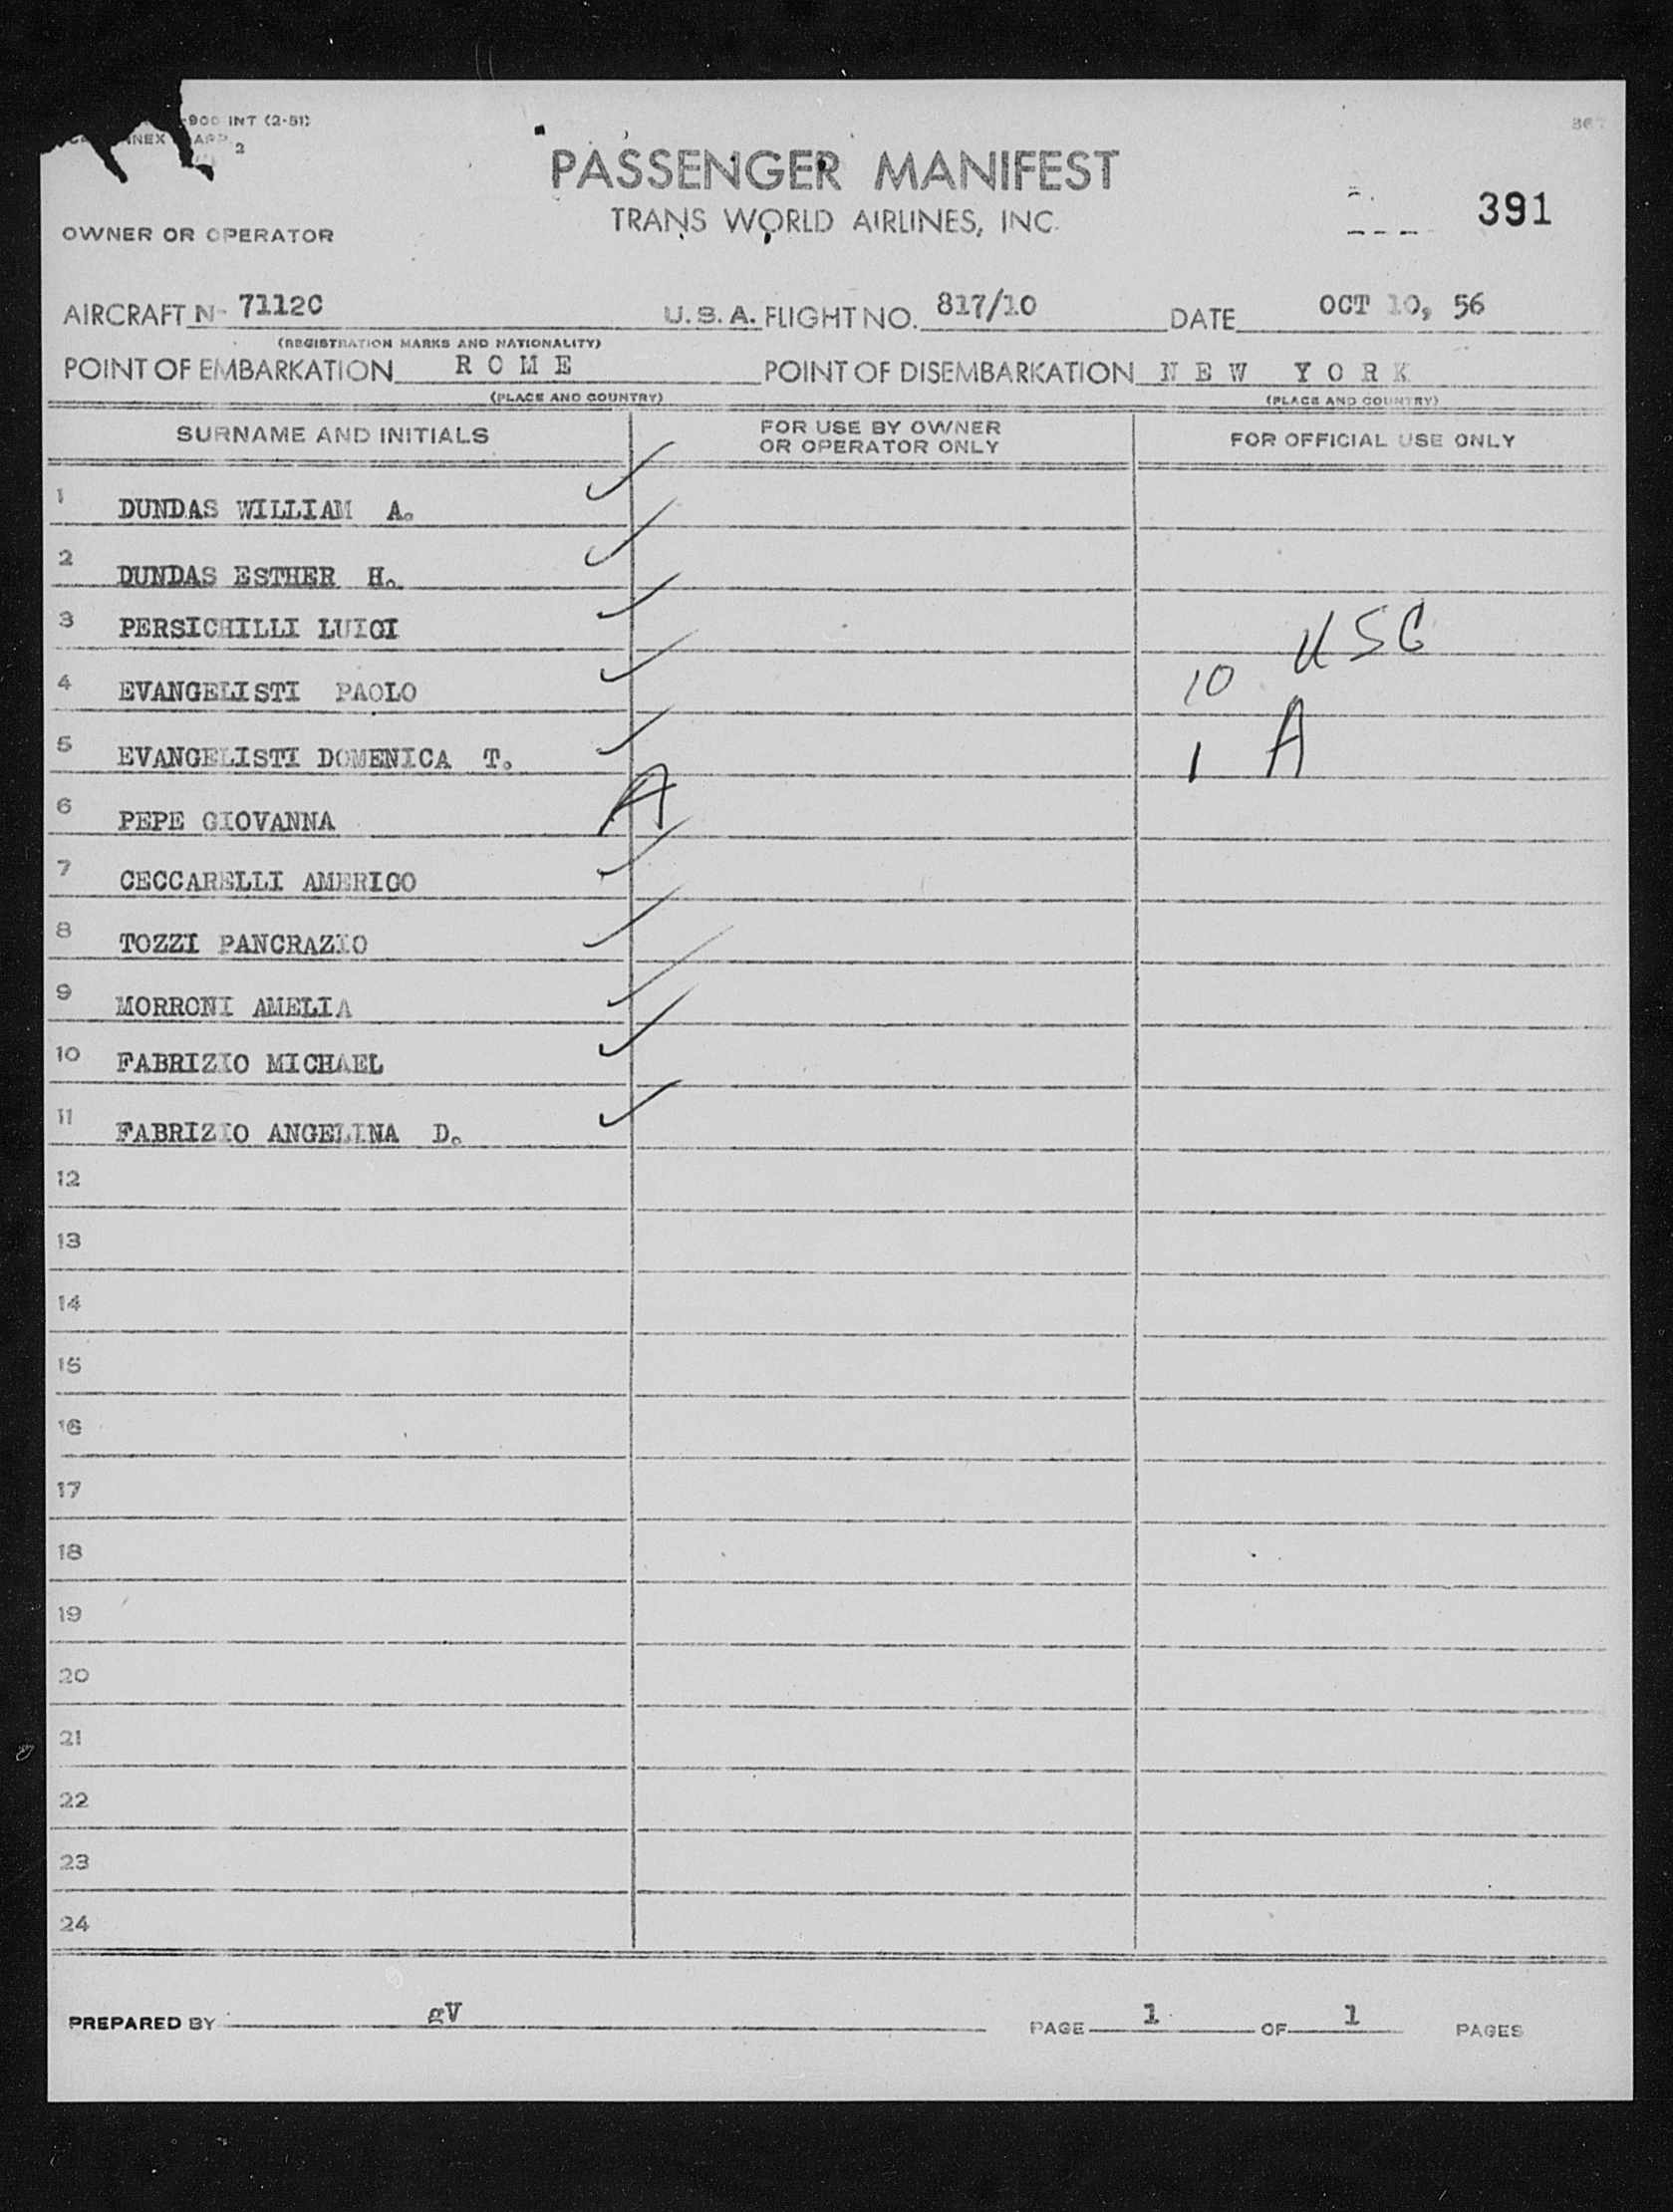 -900 INT (2-51)
NNEX
2
PASSENGER MANIFEST
TRANS WORLD AIRLINES, INC.
391
OWNER OR OPERATOR
AIRCRAFT N- 7112C U.S.A. FLIGHT NO. 817/10 DATE OCT 10, 56
(REGISTRATION MARKS AND NATIONALITY)
POINT OF EMBARKATION R O M E POINT OF DISEMBARKATION N E W Y O R K
(PLACE AND COUNTRY) (PLACE AND COUNTRY)
SURNAME AND INITIALS
FOR USE BY OWNER
OR OPERATOR ONLY
FOR OFFICIAL USE ONLY
1 DUNDAS WILLIAM A.
2 DUNDAS ESTHER H.
3 PERSICHILLI LUIGI
4 EVANGELISTI PAOLO 10 USC
5 EVANGELISTI DOMENICA T. 1 A
6 PEPE GIOVANNA A
7 CECCARELLI AMERICO
8 TOZZI PANCRAZIO
9 MORRONI AMELIA
10 FABRIZIO MICHAEL
11 FABRIZIO ANGELINA D.
12
13
14
15
16
17
18
19
20
21
22
23
24
PREPARED BY gV PAGE 1 OF 1 PAGES